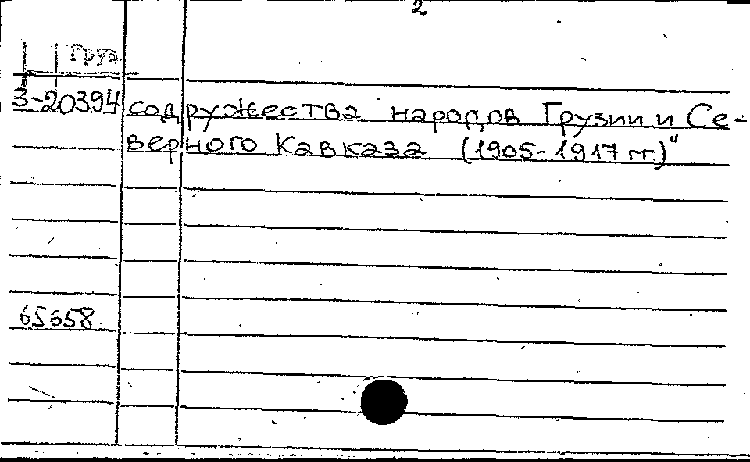 2
Груз
3-20394 содружества народов Грузии и Се-
верного Кавказа (1905-1917 гг)"
65658